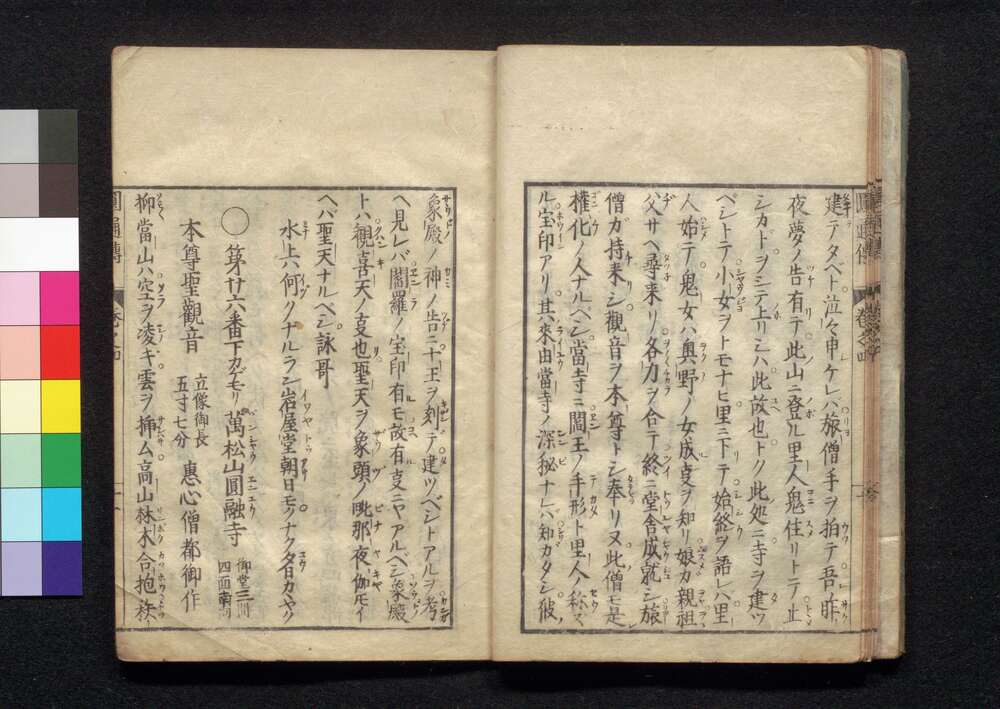 建テタベト泣々申ケレバ旅僧手ヲ拍テ吾昨
夜夢ノ告有テ此山ニ登ル里人鬼住リトテ止
シカトヲシテ上リシハ此故也トク此処ニ寺ヲ建ツ
ベシトテ小女ヲトモナヒ里ニ下テ始終ヲ語レハ里
人始テ鬼女ハ奥野ノ女成叓ヲ知リ娘カ親祖
父サヘ尋来リ各力ヲ合テ終ニ堂舎成就シ旅
僧カ持来シ觀音ヲ本尊トシ奉リヌ此僧モ是
權化ノ人ナルベシ當寺ニ閻王ノ手形ト里人ノ称ズ
ル宝印アリ其来由當寺ノ深秘ナレバ知カタシ彼ノ
象殿ノ神ノ告ニ十王ヲ刻テ建ツベシトアルヲ考
ヘ見レバ閻羅ノ宝印有モ故有叓ニヤアルベシ象殿
トハ觀喜天ノ叓也聖天ヲ象頭ノ毗那夜伽モイ
ヘバ聖天ナルベシ詠哥
水上ハ何クナルラン岩屋堂朝日モクナク夕日カヤク
○第廿六番下カゲモリ萬松山圓融寺 御堂三間四面南向
本尊聖觀音 立像御長五寸七分 惠心僧都御作
柳當山ハ空ヲ凌ギ雲ヲ挿ム高山林木合抱
圓通傳 巻之四